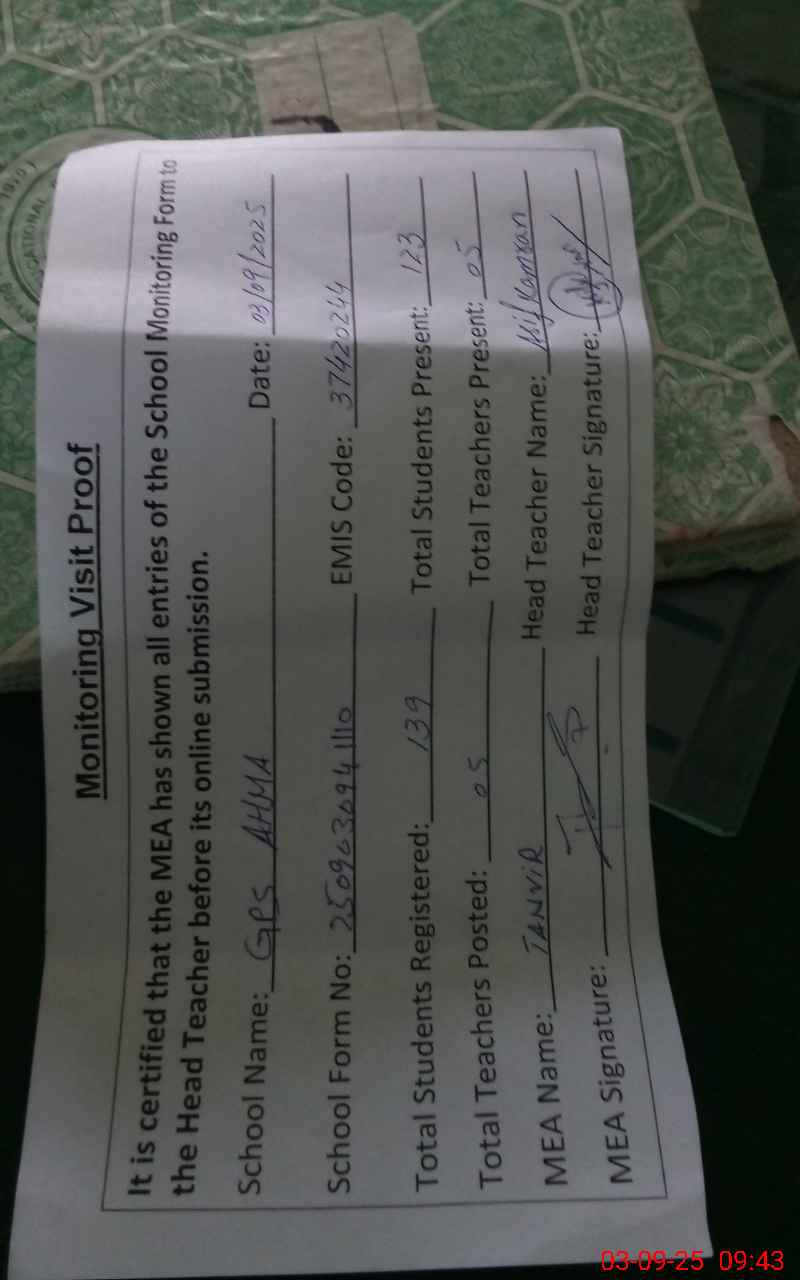 Monitoring Visit Proof
It is certified that the MEA has shown all entries of the School Monitoring Form to
the Head Teacher before its online submission.
School Name: GPS AHMA Date: 03/09/2025
School Form No: 250903094110 EMIS Code: 37420244
Total Students Registered: 139 Total Students Present: 123
Total Teachers Posted: 05 Total Teachers Present: 05
MEA Name: TANVIR Head Teacher Name: Asif Kamran
MEA Signature: Head Teacher Signature:
03-09-25 09:43